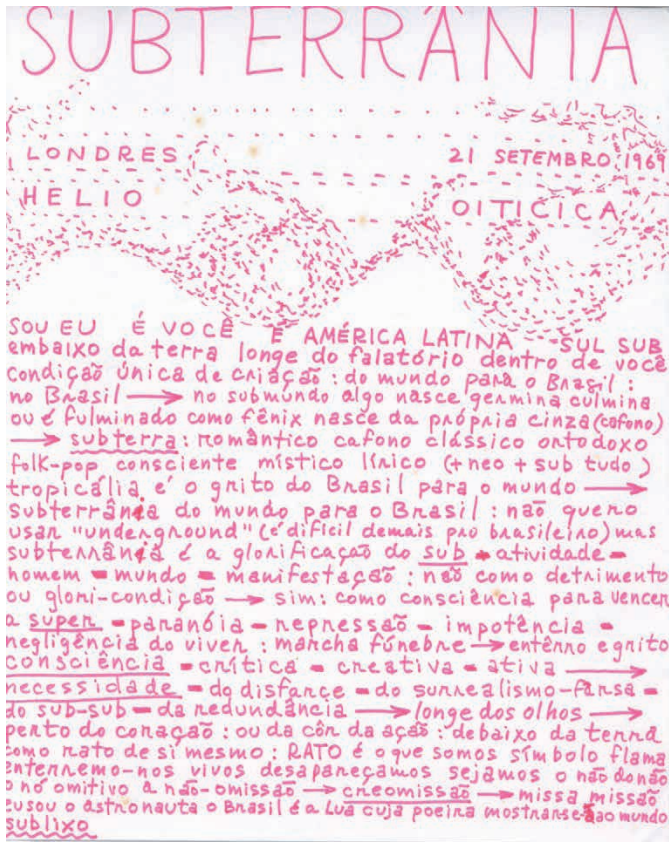 SUBTERRÂNIA
LONDRES 21 SETEMBRO, 1969
HELIO OITICICA
SOU EU É VOCÊ É AMÉRICA LATINA SUL SUB
embaixo da terra longe do falatório dentro de você
condição única de criação : do mundo para o Brasil :
no Brasil → no submundo algo nasce germina culmina
ou é fulminado como fênix nasce da própria cinza (cafono)
→ subterra : romântico cafono clássico ortodoxo
folk-pop consciente místico lírico (+ neo + sub tudo)
tropicália é o grito do Brasil para o mundo →
subterrânia do mundo para o Brasil : não quero
usar "underground" (é difícil demais pro brasileiro) mas
subterrânia é a glorificação do sub - atividade -
homem - mundo - manifestação : não como detrimento
ou glori-condição → sim : como consciência para vencer
a super - paranóia - repressão - impotência -
negligência do viver : marcha fúnebre → entêrro e grito
consciência - crítica - creativa - ativa →
necessidade - do disfarce - do surrealismo-farsa -
do sub-sub - da redundância → longe dos olhos →
perto do coração : ou da côr da ação : debaixo da terra
como rato de si mesmo : RATO é o que somos símbolo flama
enterremo-nos vivos desapareçamos sejamos o não do não
o nó omitivo a não-omissão → creomissão → missa missão
o astronauta o Brasil é a Lua cuja poeira mostrar-se-á ao mundo
sublixo